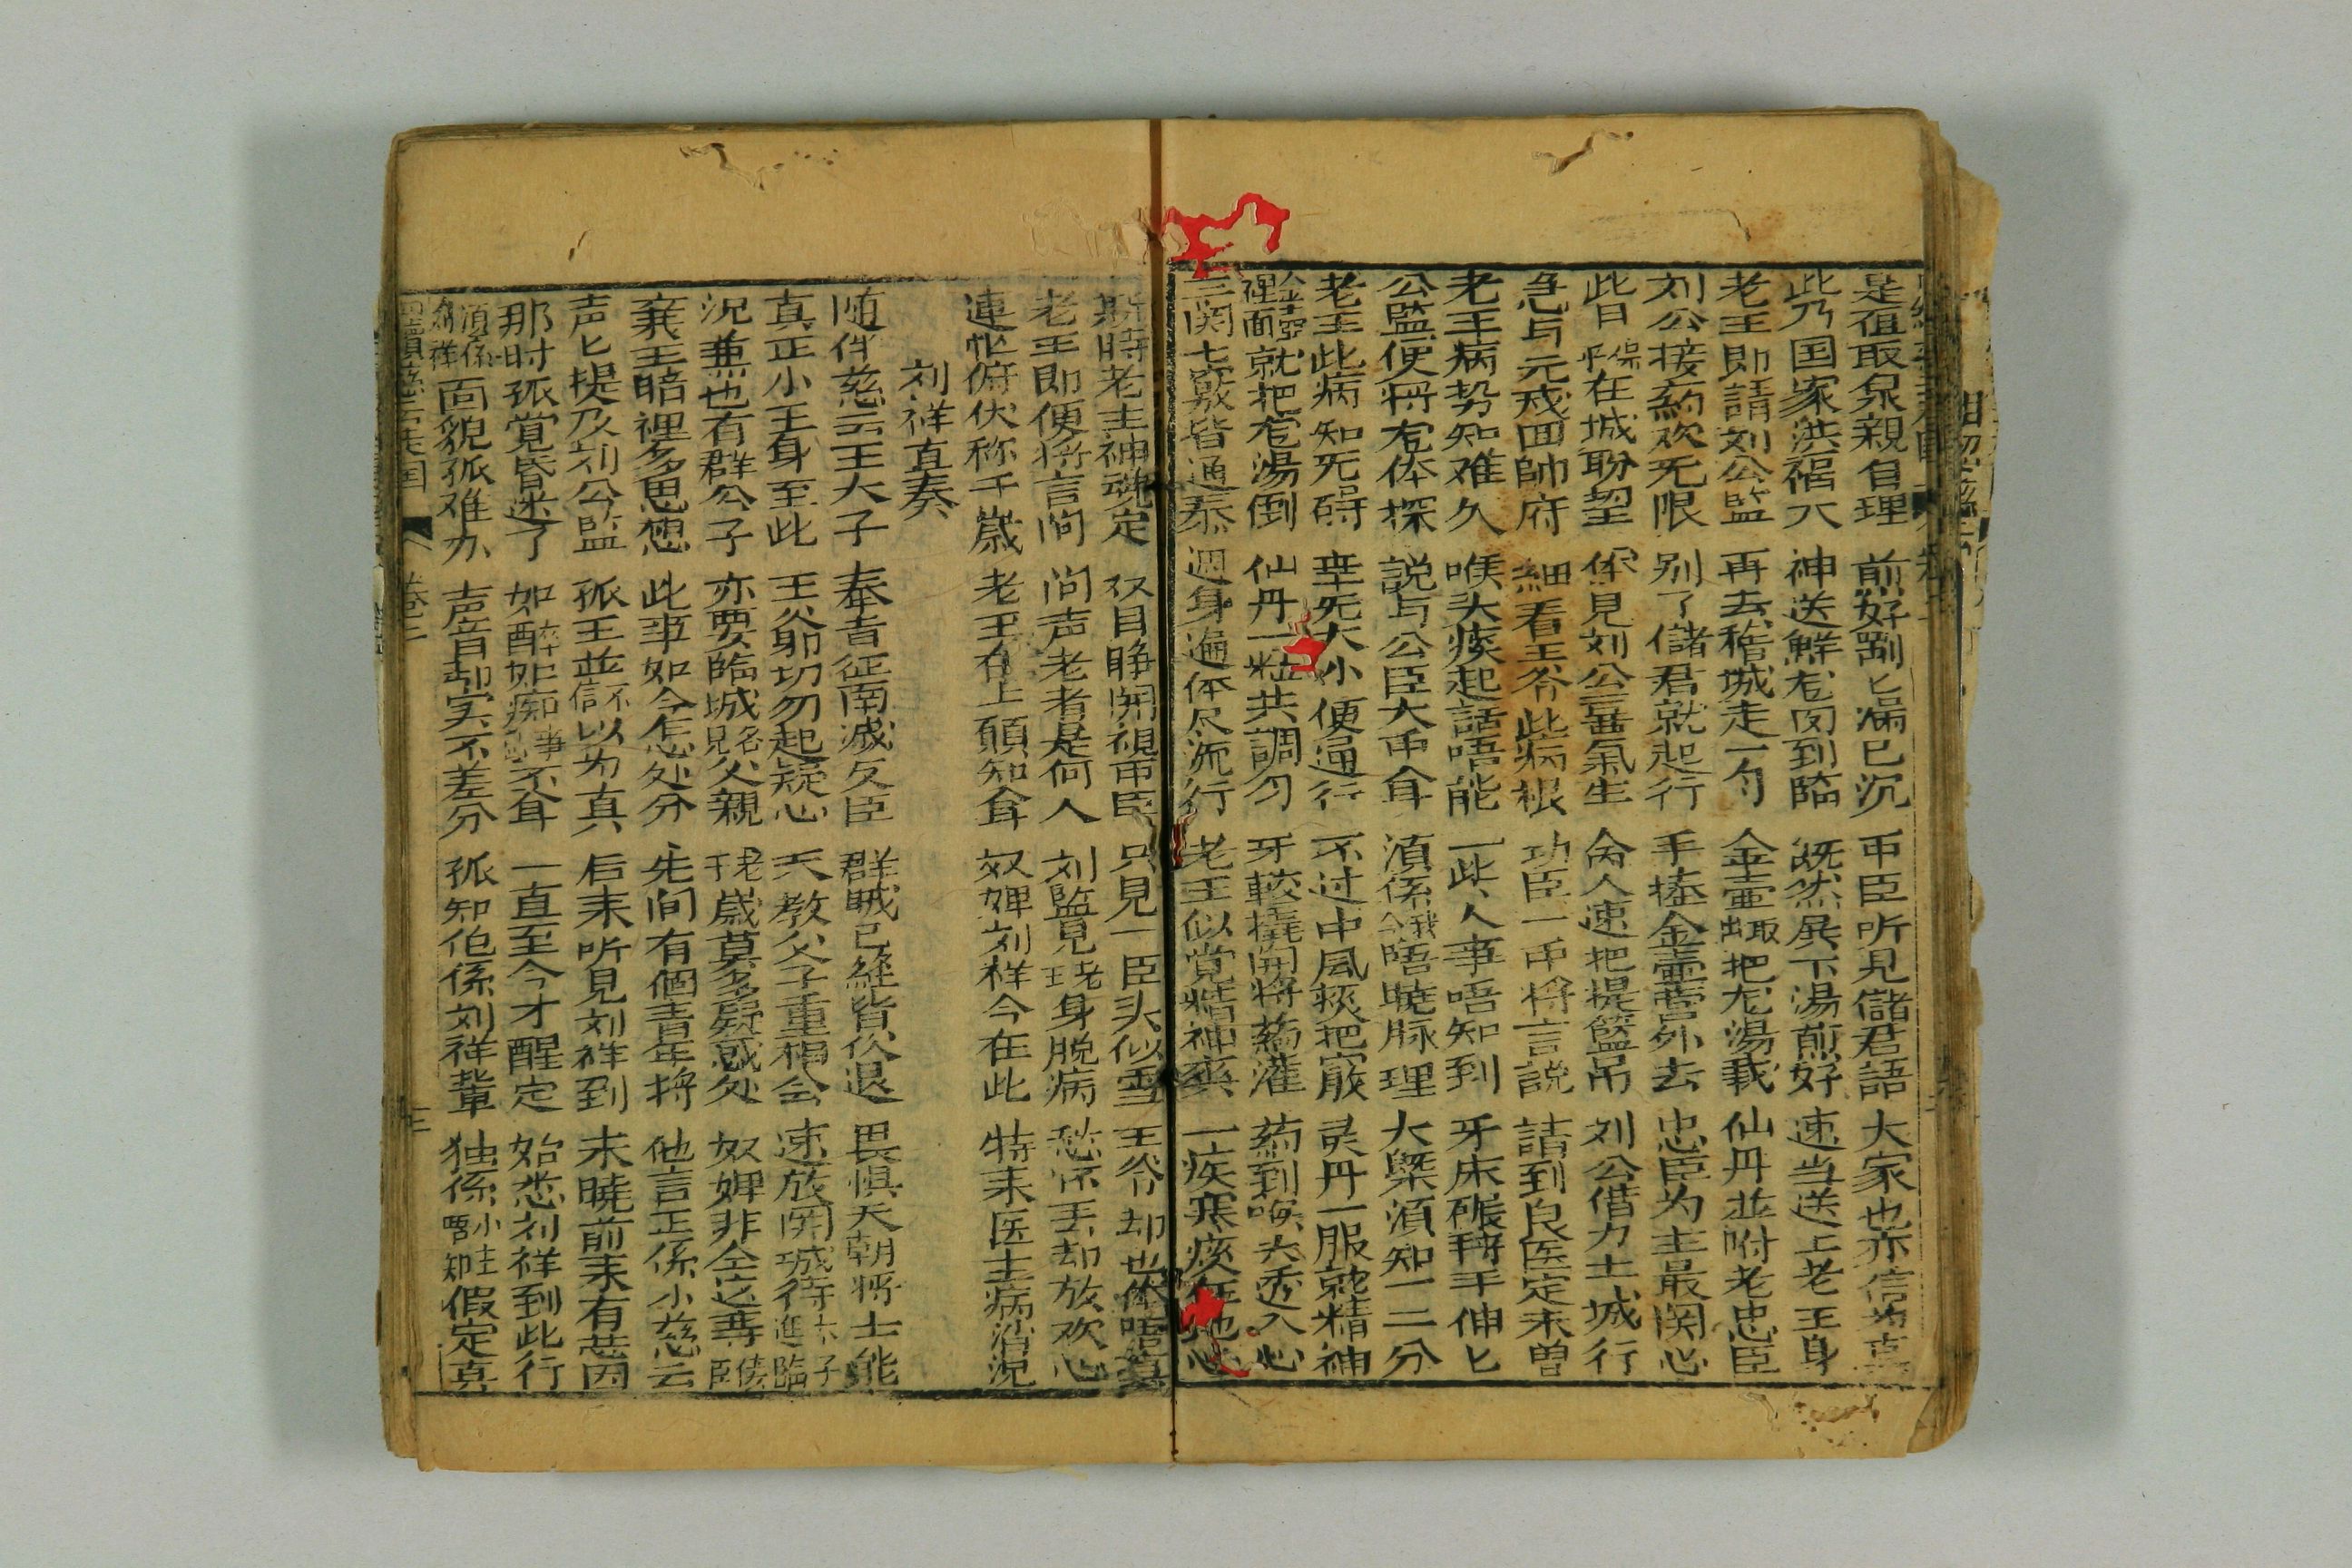 是徂取泉親自理 煎好劏匕滿已沉 帀臣听見儲君語 大家也亦信为真
此乃国家洪福大 神送鮮 到臨 既然展下湯煎好 速当送上老王身
老王即請刘公監 再去稽城走一匀 金壷 把 湯載 仙丹並咐老忠臣
刘公接葯欢无限 别了儲君就起行 手捧金壷营外去 忠臣为主最関心
此日 在城盼望 係見刘公 氣生 命人速把提籃吊 刘公借力土城行
急与元戎回帥府 細看王爷此病根 功臣一帀将言説 請到良医定未曾
老王病势知难久 喉头痰起話唔能 一此人事唔知到 牙床 手伸匕
公監便将 体探 説与公臣大帀耳 湏係 唔曉脉理 大槩湏知一二分
老王此病知无碍 幸无大小便通行 不过中風痰把 灵丹一服就精神
金壷裡面就把 湯倒 仙丹一粒共調匀 牙較撬開将葯灌 葯到喉头透入心
三関七竅皆通泰 週身遍体尽流行 老王似覚精神爽 一疾寒痰在
斯時老主神魂定 双目睁開視帀臣 只見一臣头似雪 王爷却也
老王即便将言问 问声老者是何人 刘監見 身脱病 愁怀 却放欢心
連忙俯伏称千歳 老王在上願知耳 奴婢刘祥今在此 特来医主病消沉
刘祥直奏
随伴慈云王大子 奉旨征南滅反臣 群賊已經皆伏退 畏惧天朝将士能
真正小王身至此 王爷即切勿起疑心 天教父子重相会 速放開城待太子進臨
況兼也有群公子 亦要臨城見父親 千歳莫多疑惑处 奴婢非全 臣
棄王暗裡多思想 此事如今怎处分 先间有個青年将 他言正係小慈云
声匕提及刘公監 孤王並不信以为真 后来听見刘祥到 未曉前来有甚因
那时孤覚昏迷了 如醉如痴事不耳 一直至今才醒定 始悉刘祥到此行
湏係刘祥面貌孤难办 声音却实不差分 孤知他係刘祥輩 独係小主唔知假定真